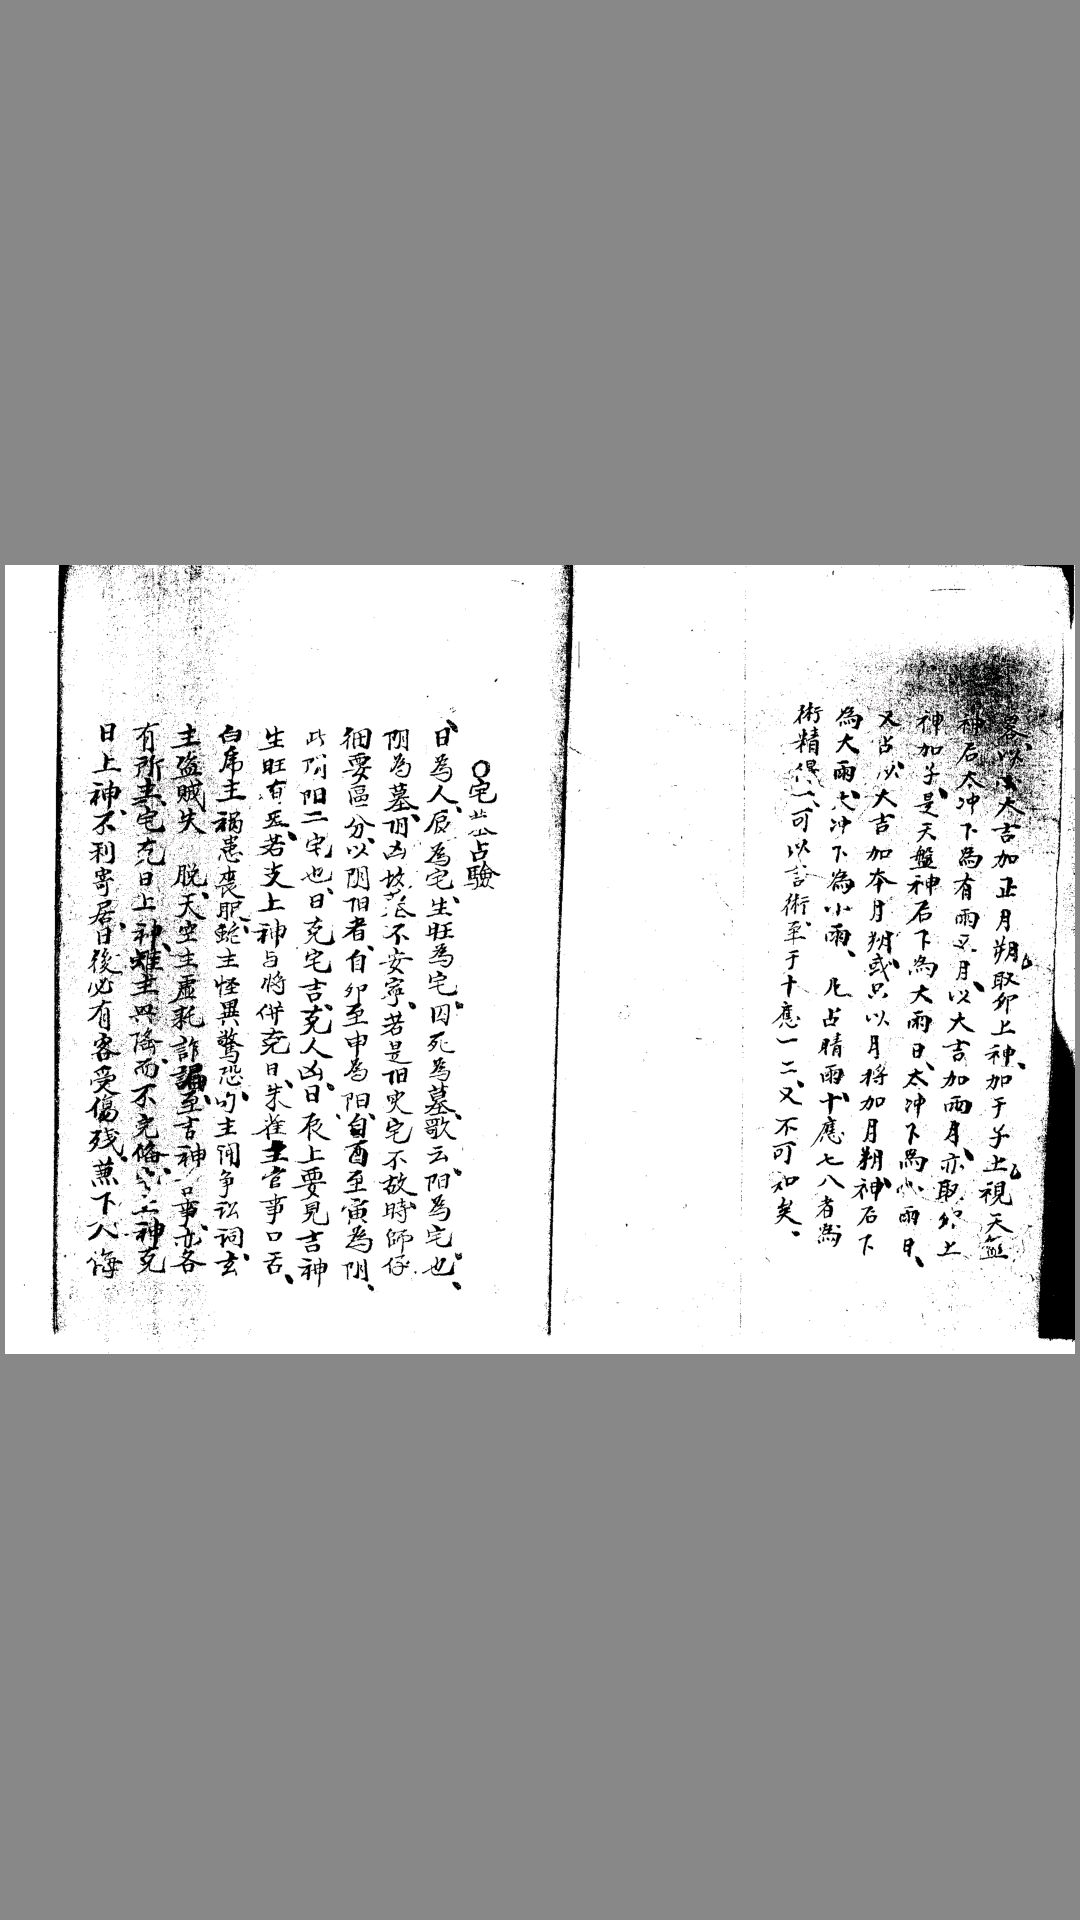 大吉加正月朔取卯上神加于子上視天盤
神后太冲下為有雨月以大吉加雨月亦取卯上
神加子是天盤神后下為大雨日太冲下為小雨日
又占以大吉加本月朔或只以月将加月朔神后下
為大雨太冲下為小雨凡占晴雨十應七八者為
術精得一可以言術至于十應一二又不可知矣
○宅占驗
日為人辰為宅生旺為宅囚死為墓歌云阳為宅也
阴為墓凶坟不安寧若是旧宅不故時師仔
细要區分以阴阳者自卯至申為阳自酉至寅為阴
此阴阳二宅也日克宅吉克人凶日辰上要見吉神
生旺有若支上神与将併克日朱雀主官事口舌
白虎主禍患喪服蛇主怪異驚恐勾主闹争讼詞玄
主盗贼失脱天空主虚耗詐至吉神事亦各
有所主宅克日上神雖主興隆而不完俻上神克
日上神不利寄居日後必有客受傷残兼下人侮